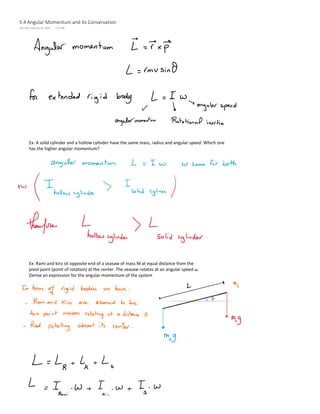 5.4 Angular Momentum and its Conservation
Angular momentum L = r x p
L = rmv sinθ
for extended rigid body L = I ω
angular speed
angular momentum Rotational inertia
Ex: A solid cylinder and a hollow cylinder have the same mass, radius and angular speed. Which one
has the higher angular momentum?
angular momentum L = I ω ω same for both
( I hollow cylinder > I solid cylinder
therefore L hollow cylinder > L solid cylinder.
Ex: Remi and kiru sit opposite end of a seasaw of mass M at equal distance from the
pivot point (point of rotation) at the center. The seasaw rotates at an angular speed ω.
Derive an expression for the angular momentum of the system
In terms of rigid bodies we have:
- Remi and Kiru are assumed to be
two point masses rotating at a distance
- Rod rotating about its center.
L
θ
m g
m g
L = L R + L K + L s
L = I Remi . ω + I . ω + I s . ω